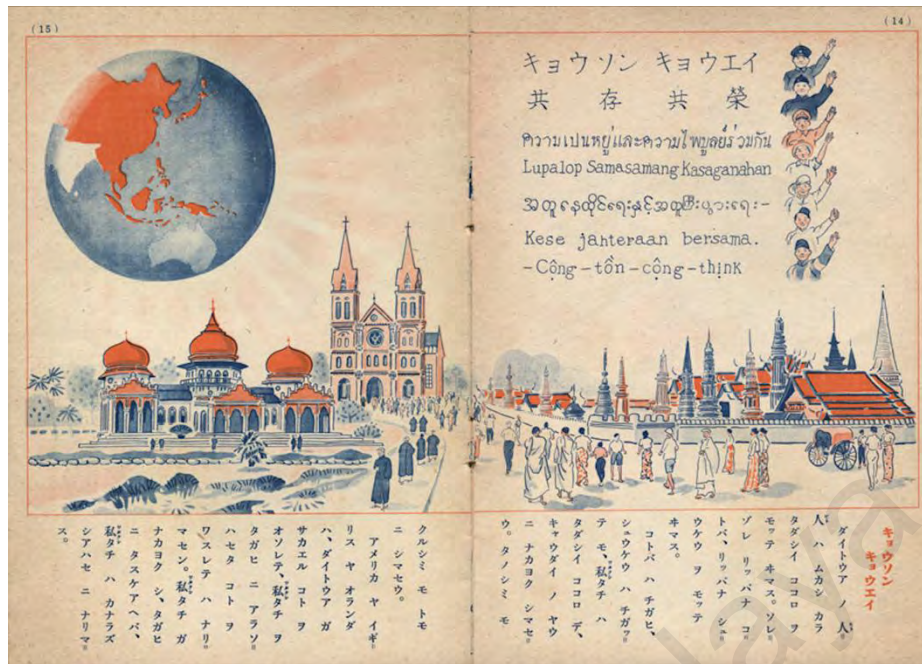 (14)
キョウソン キョウエイ
共存共榮
ความเปนหยู่และความไพบูลย์ร่วมกัน
Lupalop Samasamang Kasaganahan
Kese jahteraan bersama.
-Cộng-tồn-cộng-thịnk
キョウソン
キョウエイ
ダイトウア ノ 人
人 ハ ムカシ カラ
タダシイ ココロ ヲ
モッテ ヰマス。ソレ
ゾレ リッパナ コ
トバ、リッパナ シュ
ウケウ ヲ モッテ
ヰマス。
コトバ ハ チガヒ、
シュウケウ ハ チガッ
テ モ、私タチ ハ
タダシイ ココロ デ、
キャウダイ ノ ヤウ
ニ ナカヨク シマセ
ウ。タノシミ モ
(15)
クルシミ モ トモ
ニ シマセウ。
アメリカ ヤ イギ
リス ヤ オランダ
ハ、ダイトウア ガ
サカエル コト ヲ
オソレテ、私タチ ヲ
タガヒ ニ アラソ
ハセタ コト ヲ
ワスレテ ハ ナリ
マセン。私タチ ガ
ナカヨク シ、タガヒ
ニ タスケアヘバ、
私タチ ハ カナラズ
シアハセ ニ ナリマ
ス。
laya